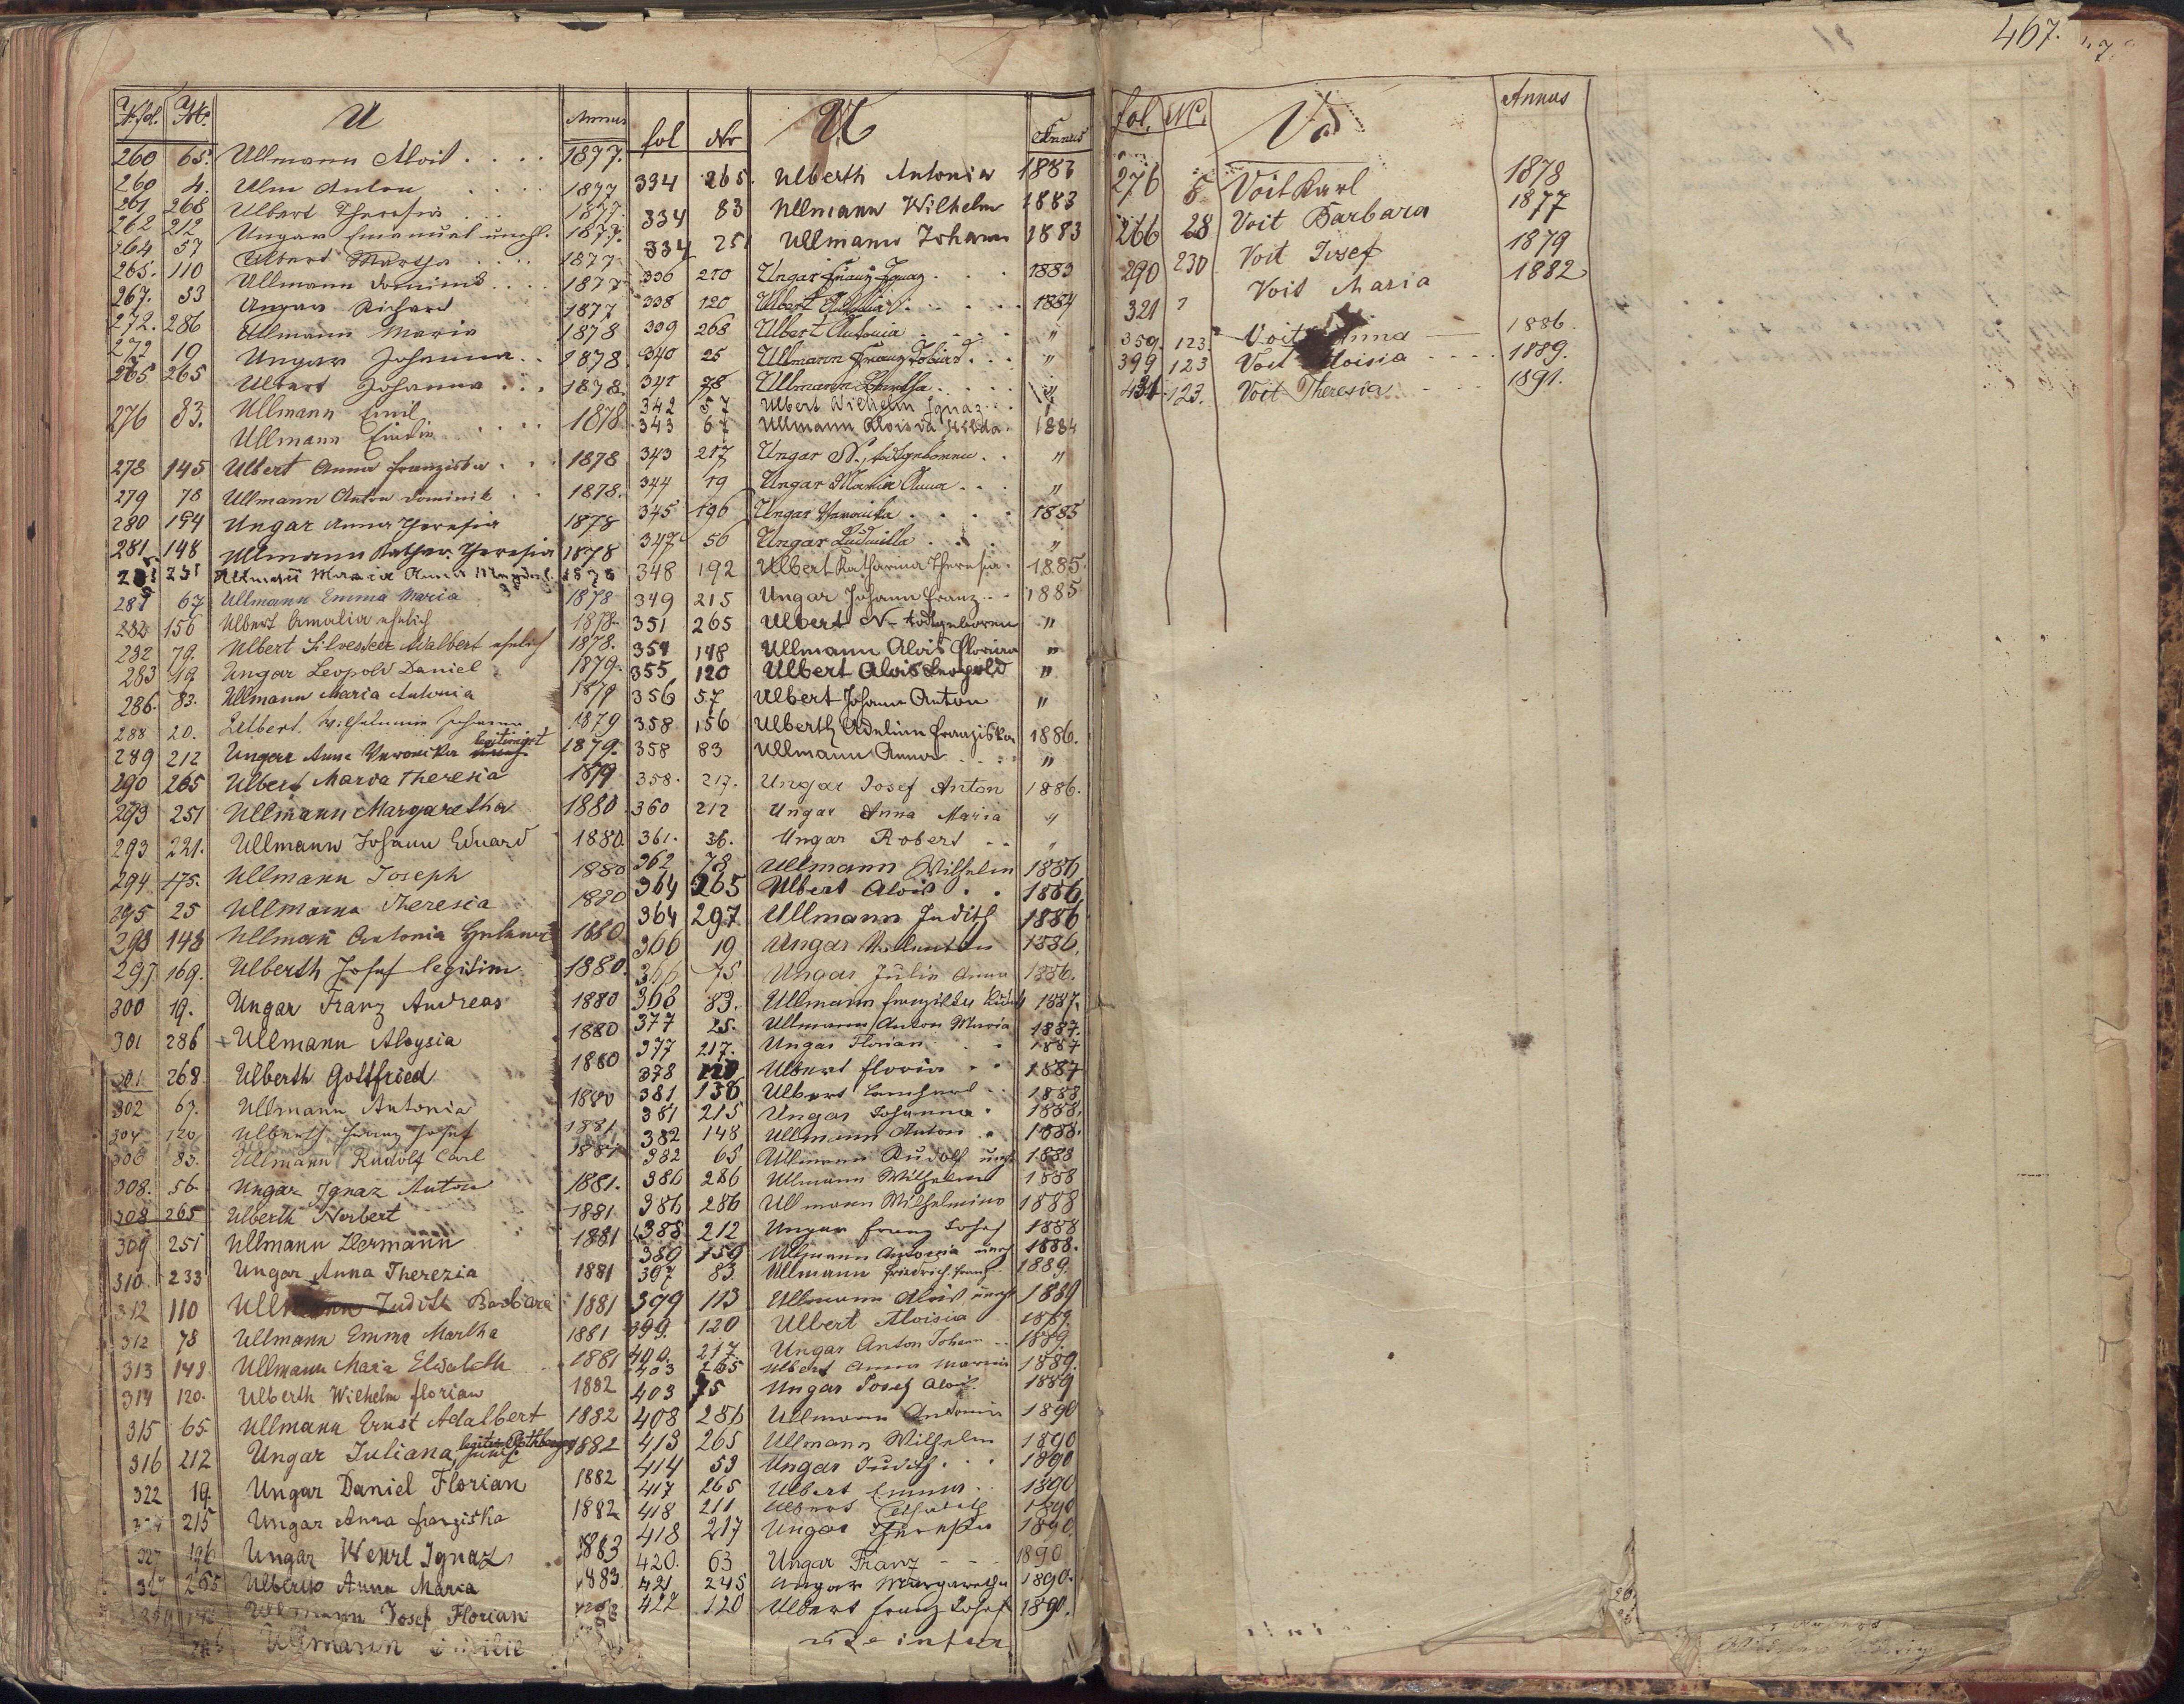 467.
fol. Nr. U Annus
260 65. Ullmann Alois . . . . 1877.
260 4. Ulm Anton . . . . 1877
261 268 Ulbert Theresia . . . 1877.
262 212 Ungar Emanuel unehl. 1877.
264 57 Ulbert Martha . . . . 1877
265. 110 Ullmann Dominik . . . . 1877
267. 53 Ungar Richard 1877
272. 286 Ullmann Maria 1878
272 19 Ungar Johanna . . 1878.
265 265 Ulbert Johanna . . . 1878.
276 83. Ullmann Emil
Ullmann . . . . 1878
278 145 Ulbert Anna Franziska . . . 1878
279 78 Ullmann Anton Dominik . . 1878.
280 194 Ungar Anna Theresia 1878
281 148 Ullmann Kathar. Theresia 1878
251 Ullmann Maria Anna 1878
281 67 Ullmann Emma Maria 1878
282 156 Ulbert Amalia ehelich 1878.
282 79. Ulbert Silvester Adalbert ehelich 1878.
283 19 Ungar Leopold Daniel 1879.
286. 83. Ullmann Maria Antonia 1879
288 20. Ulbert Wilhelmine Johanna 1879
289 212 Ungar Anna Veronika legitimirt 1879.
290 265 Ulbert Maria Theresia 1879
293 251 Ullmann Margaretha 1880.
293 221. Ullmann Johann Eduard 1880.
294 175. Ullmann Joseph 1880
295 25 Ullmann Theresia 1880
298 148 Ullmann Antonia 1880
297 169. Ulberth Josef legitim 1880.
300 19. Ungar Franz Andreas 1880
301 286 + Ullmann Aloysia 1880
301 268 Ulberth Gottfried 1880
302 67. Ullmann Antonia 1880
304 120 Ulberth Franz Josef 1881
306 83. Ullmann Rudolf Carl 1881
308. 56 Ungar Ignaz Anton 1881.
308 265 Ulberth Norbert 1881
309 251 Ullmann Hermann 1881
310. 233 Ungar Anna Therezia 1881
312 110 Ullmann Judith Barbara 1881
312 78 Ullmann Emma Martha 1881
313 148 Ullmann Maria Elisabeth 1881
314 120. Ulberth Wilhelm Florian 1882
315 65 Ullmann Ernst Adalbert 1882
316 212 Ungar Juliana, 1882
322 19. Ungar Daniel Florian 1882
215 Ungar Anna Franziska 1882
327 196 Ungar Wenzl Ignaz 1883
265 Ulberth Anna Maria 1883
Ullmann Josef Florian
Ullmann
fol Nr U Annus
334 265. Ulberth Antonia 1883
334 83 Ullmann Wilhelm 1883
334 251 Ullmann Johann 1883
336 270 Ungar Franz Ignaz . . . . 1883
338 120 Ulbert . . . . . 1884
339 268 Ulbert Antonia . . . . "
340 25 Ullmann Franz Tobias . . . "
341 78 Ullmann Bertha . . . . "
342 57 Ulbert Wilhelm Ignaz . . . "
343 67 Ullmann Aloisia Hilda. 1884
343 217 Ungar N., todtgeboren . . "
344 19 Ungar Maria Anna . . . "
345 196 Ungar Veronika . . . . 1885
347 56 Ungar Ludmilla . . . "
348 192 Ulbert Katharina Theresia. 1885.
349 215 Ungar Johann Franz . . . 1885
351 265 Ulbert N- todtgeboren "
351 148 Ullmann Alois Florian "
355 120 Ulbert Alois Leopold "
356 57 Ulbert Johann Anton "
358 156 Ulberth Adelina Franziska 1886.
358 83 Ullmann Anna . . . . "
358. 217. Ungar Josef Anton 1886.
360 212 Ungar Anna Maria "
361. 36. Ungar Robert . . "
362 78 Ullmann Wilhelm 1886
364 265 Ulbert Alois . . 1886
364 297 Ullmann Judith 1886
366 19 Ungar Valentin 1886.
366 75 Ungar Julie Anna 1886.
368 83. Ullmann Franziska 1887.
377 25. Ullmann Anton Maria 1887.
377 217. Ungar Florian . . 1887
378 120 Ulbert Florian . . 1887
381 136 Ulbert . . 1888
381 215 Ungar Johanna . 1888.
382 148 Ullmann Anton . 1888.
382 65 Ullmann Rudolf uneh 1888
386 286 Ullmann Wilhelm 1888
386 286 Ullmann Wilhelmine 1888
388 212 Ungar Franz Josef 1888
389 159 Ullmann Antonia uneh 1888.
397 83. Ullmann Friedrich Franz 1889.
399 113 Ullmann Alois uneh 1889
399. 120 Ulbert Aloisia 1889.
400. 217. Ungar Anton Johann . . 1889.
403 265 Ulbert Anna Maria 1889.
403 75 Ungar Josef Alois. 1889
408 286 Ullmann Antonia 1890
413 265 Ullmann Wilhelm 1890
414 53 Ungar Judith . . . 1890
417 265 Ulbert Emma . . 1890
418 211 Ulbert 1890
418 217 Ungar Theresia 1890.
420. 63 Ungar Franz - - 1890
421 245 Ungar Margaretha 1890.
422 120 Ulbert Franz Josef 1890.
vide infra
fol. NC. V Annus
276 8 Voit Karl 1878
266 28 Voit Barbara 1877
290 230 Voit Josef 1879
321 7 Voit Maria 1882
359. 123. Voit Anna 1886.
399 123 Voit Aloisia . . . . 1889.
431. 123. Voit Theresia . . . 1891.